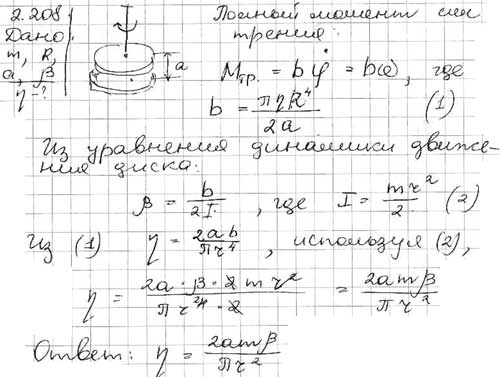 2.208
Дано:
m, R,
a, β
η - ?
a
Полный момент сил
трения:
Mтр. = bφ̇ = bω, где
b = πηR⁴/2a (1)
Из уравнения динамики движе-
ния диска:
β = b/2I, где I = mr²/2 (2)
Из (1) η = 2ab/πr⁴, используя (2),
η = 2a·β·2mr²/πr⁴·2 = 2amβ/πr²
Ответ: η = 2amβ/πr²